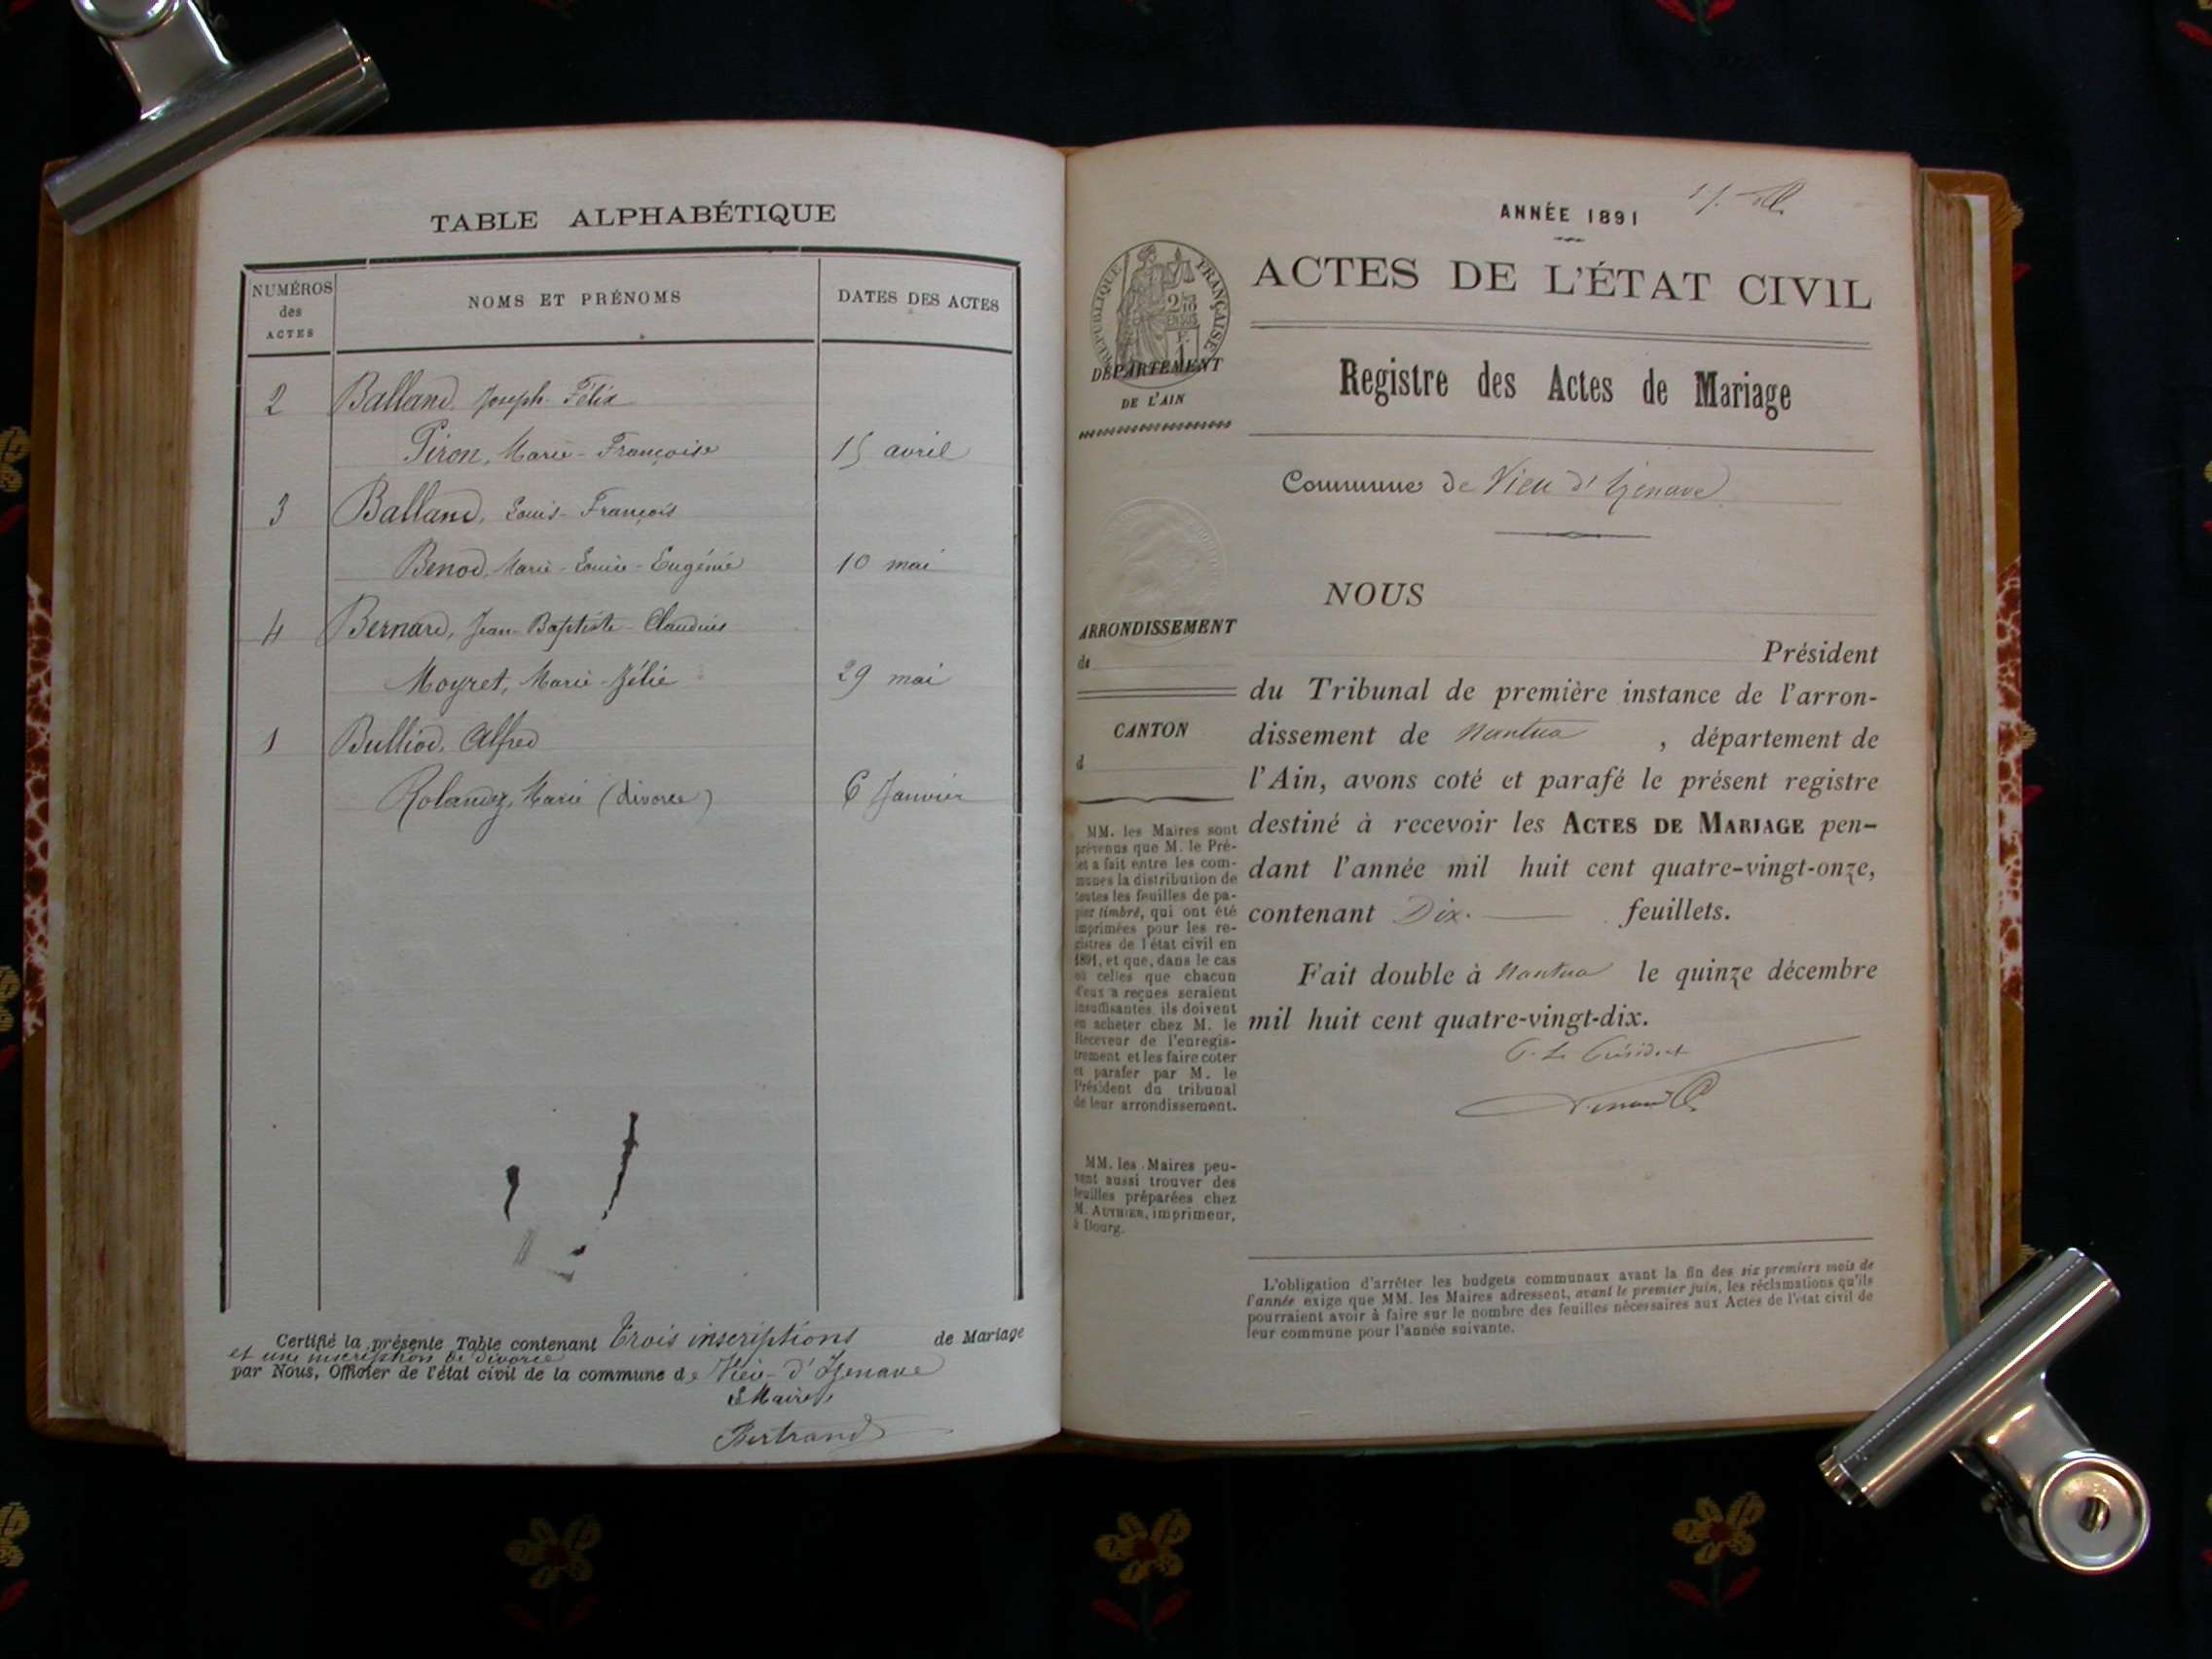 TABLE ALPHABÉTIQUE
NUMÉROS
des
ACTES
NOMS ET PRÉNOMS
DATES DES ACTES
2 Balland, Joseph-Félix
Piron, Marie-Françoise 15 avril
3 Balland, Louis-François
Benod, Marie-Louise-Eugénie 10 mai
4 Bernard, Jean-Baptiste-Claudius
Moyret, Marie-Zélie 29 mai
1 Bulliod, Alfred
Rolandez, Marie (divorce) 6 Janvier
Certifié la présente Table contenant Trois inscriptions de Mariage
et une inscription de divorce
par Nous, Officier de l'état civil de la commune de Vieu-d'Izenave
Le Maire,
Bertrand
ANNÉE 1891
RÉPUBLIQUE FRANÇAISE
ACTES DE L'ÉTAT CIVIL
DÉPARTEMENT
DE L'AIN
Registre des Actes de Mariage
Commune de Vieu d'Izenave
ARRONDISSEMENT
de
CANTON
d
MM. les Maires sont
prévenus que M. le Pré-
fet a fait entre les com-
munes la distribution de
toutes les feuilles de pa-
pier timbré, qui ont été
imprimées pour les re-
gistres de l'état civil en
1891, et que, dans le cas
où celles que chacun
d'eux a reçues seraient
insuffisantes ils doivent
en acheter chez M. le
Receveur de l'enregis-
trement et les faire coter
et parafer par M. le
Président du tribunal
de leur arrondissement.
MM. les Maires peu-
vent aussi trouver des
feuilles préparées chez
M. AUTHIER, imprimeur,
à Bourg.
NOUS
Président
du Tribunal de première instance de l'arron-
dissement de Nantua , département de
l'Ain, avons coté et parafé le présent registre
destiné à recevoir les ACTES DE MARIAGE pen-
dant l'année mil huit cent quatre-vingt-onze,
contenant Dix. feuillets.
Fait double à Nantua le quinze décembre
mil huit cent quatre-vingt-dix.
P. Le Président
L'obligation d'arrêter les budgets communaux avant la fin des six premiers mois de
l'année exige que MM. les Maires adressent, avant le premier juin, les réclamations qu'ils
pourraient avoir à faire sur le nombre des feuilles nécessaires aux Actes de l'état civil de
leur commune pour l'année suivante.